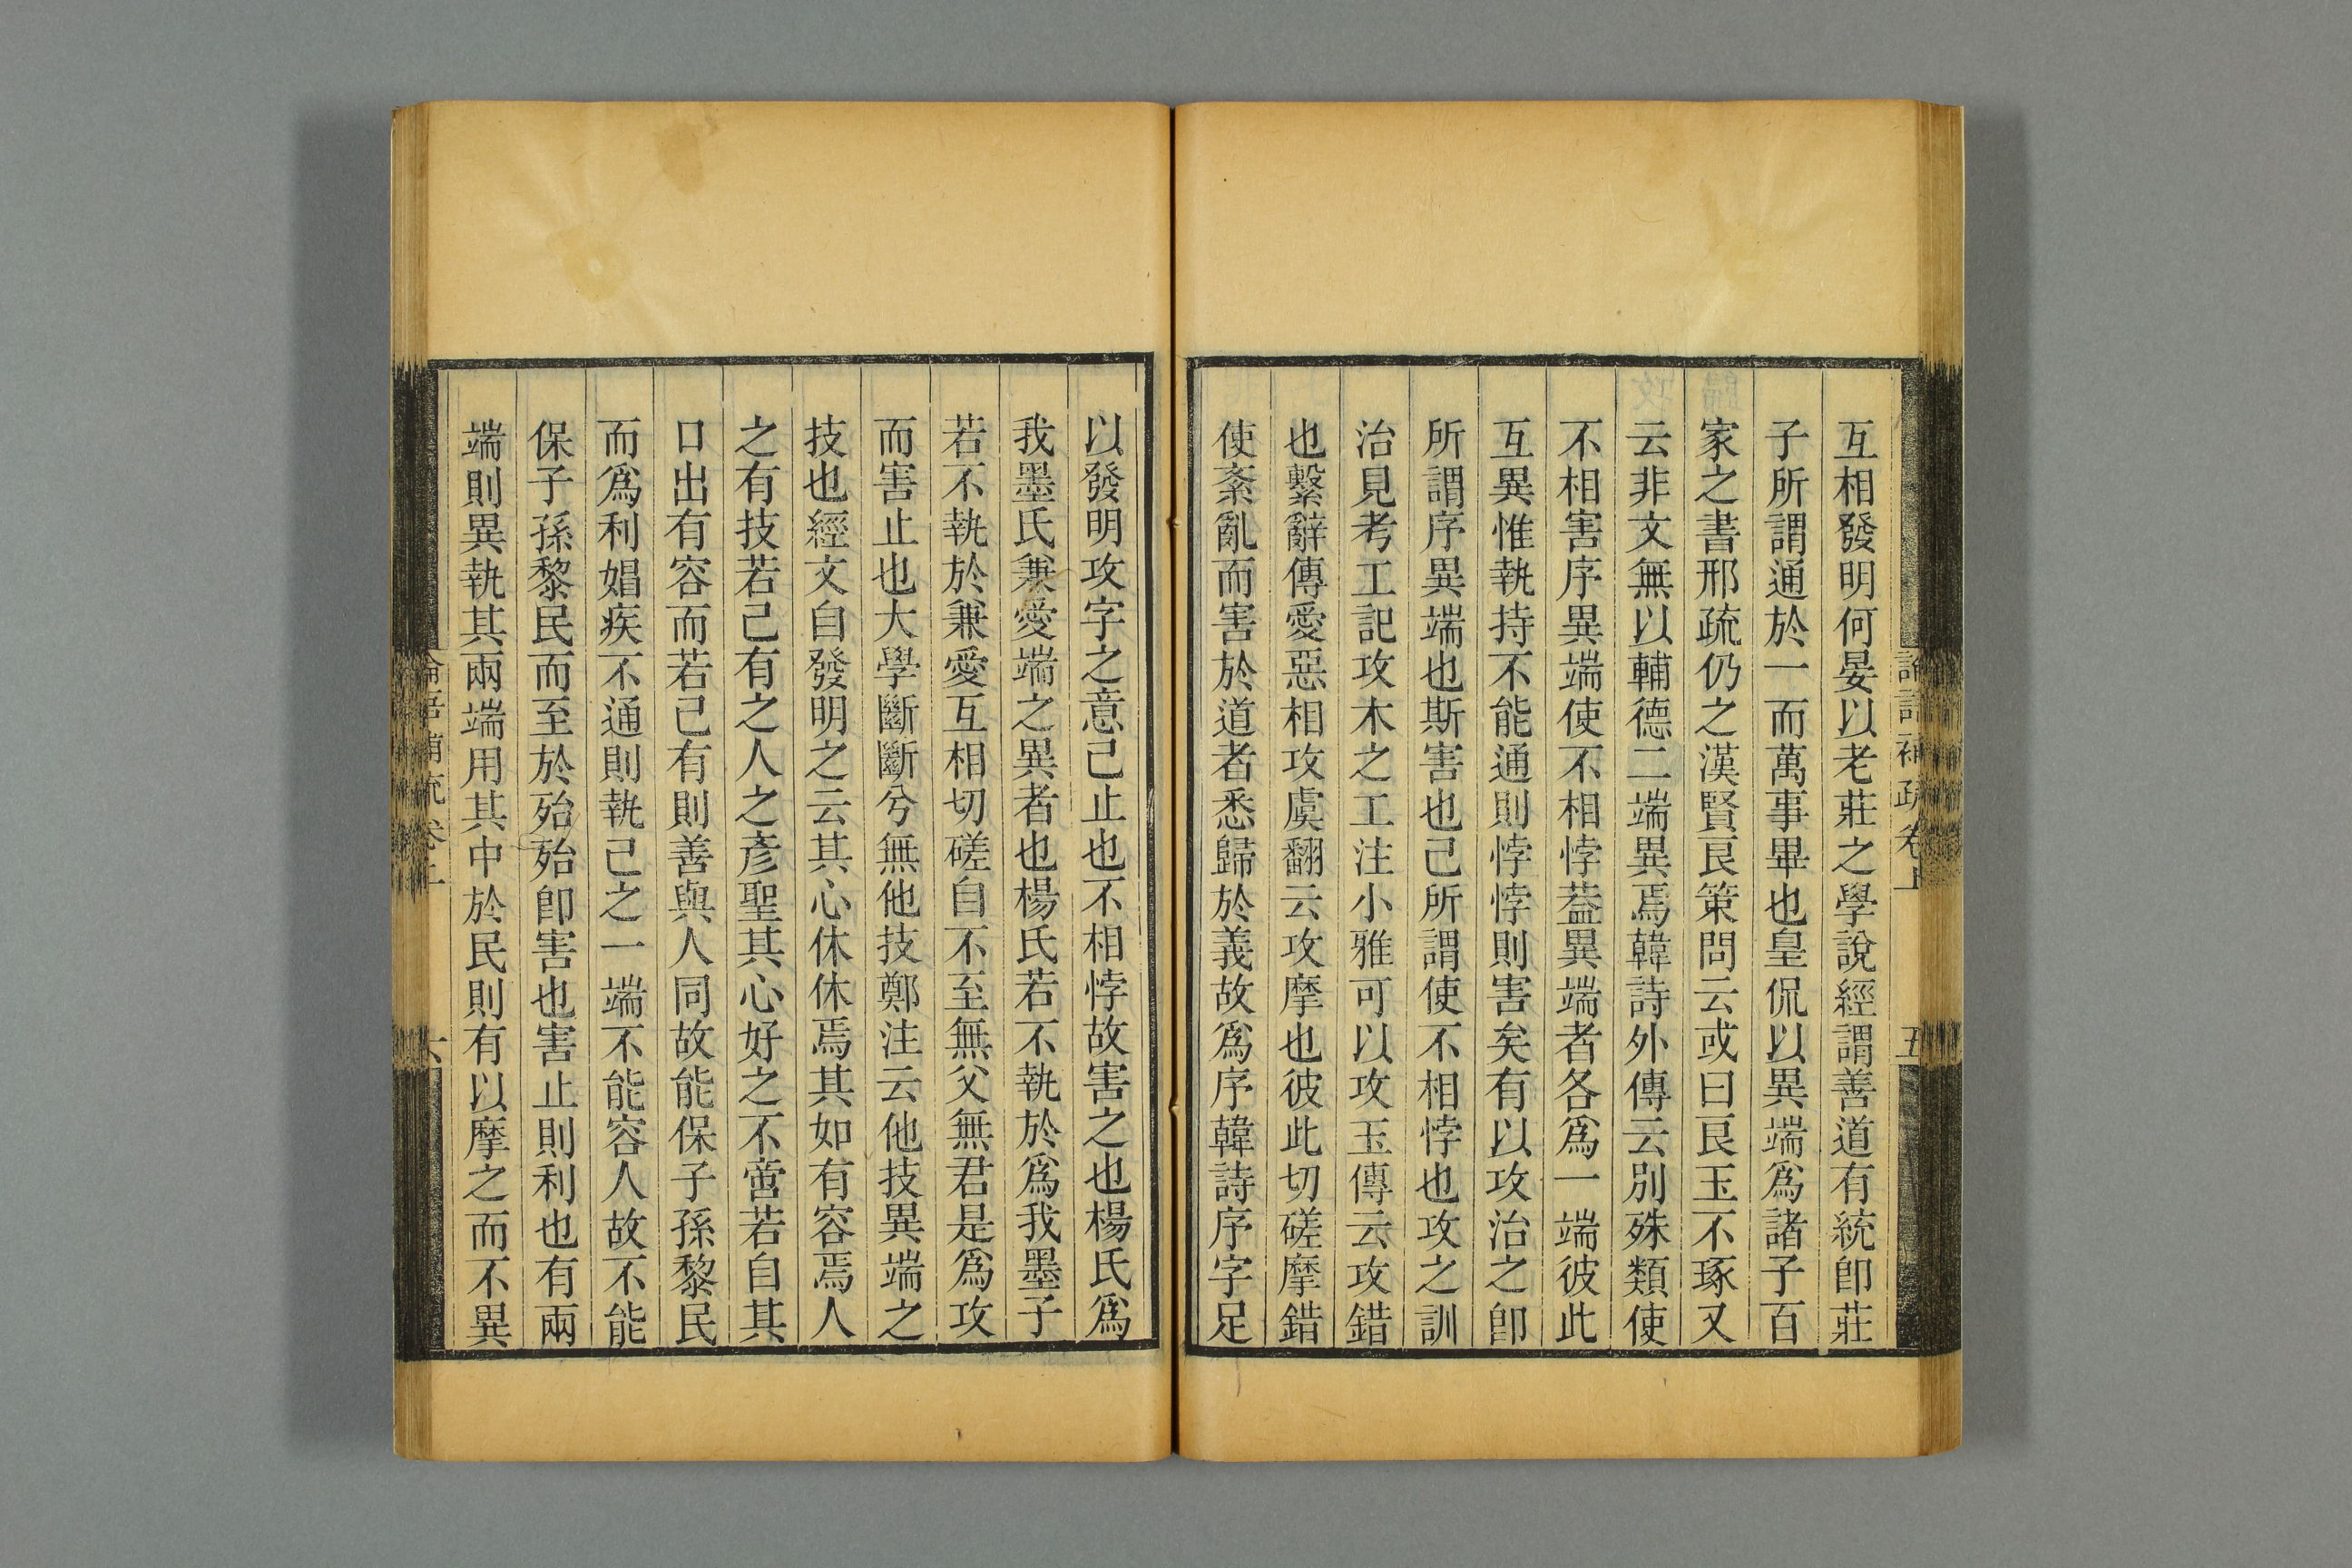 論語補疏卷上
五
互相發明何晏以老莊之學說經謂善道有統卽莊
子所謂通於一而萬事畢也皇侃以異端爲諸子百
家之書邢疏仍之漢賢良策問云或曰良玉不琢又
云非文無以輔德二端異焉韓詩外傳云別殊類使
不相害序異端使不相悖葢異端者各爲一端彼此
互異惟執持不能通則悖悖則害矣有以攻治之卽
所謂序異端也斯害也己所謂使不相悖也攻之訓
治見考工記攻木之工注小雅可以攻玉傳云攻錯
也繫辭傳愛惡相攻虞翻云攻摩也彼此切磋摩錯
使紊亂而害於道者悉歸於義故爲序韓詩序字足
以發明攻字之意己止也不相悖故害之也楊氏爲
我墨氏兼愛端之異者也楊氏若不執於爲我墨子
若不執於兼愛互相切磋自不至無父無君是爲攻
而害止也大學斷斷兮無他技鄭注云他技異端之
技也經文自發明之云其心休休焉其如有容焉人
之有技若己有之人之彥聖其心好之不啻若自其
口出有容而若己有則善與人同故能保子孫黎民
而爲利媢疾不通則執己之一端不能容人故不能
保子孫黎民而至於殆殆卽害也害止則利也有兩
端則異執其兩端用其中於民則有以摩之而不異